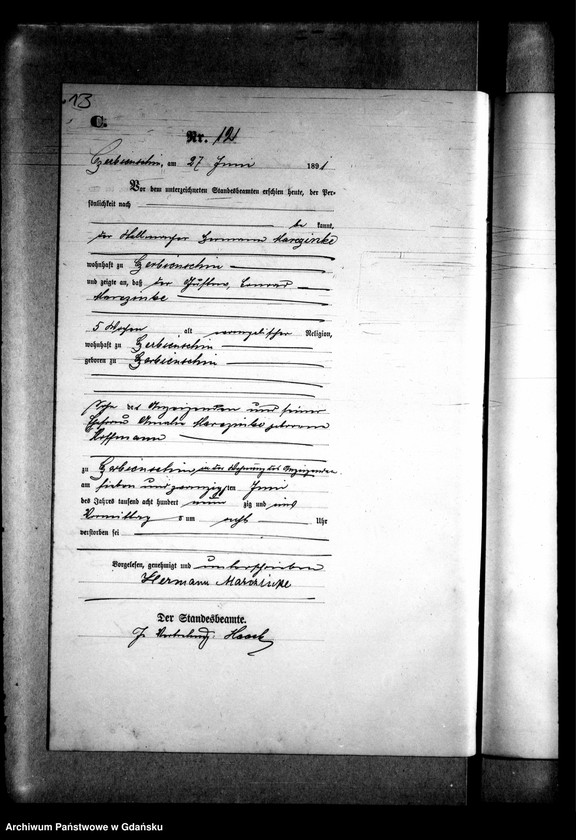 13
C.
Nr. 12
am 27 Juni 1891
Vor dem unterzeichneten Standesbeamten erschien heute, der Per-
sönlichkeit nach
be kannt,
der Hermann Marczinke
wohnhaft zu
und zeigte an, daß der Gustav, Conrad
Marczinke
5 Wochen alt evangelischer Religion,
wohnhaft zu
geboren zu
Sohn des Anzeigenden und seiner
Ehefrau Amalie Marczinke geborene
Hoffmann
zu in der Wohnung des Anzeigenden
am sieben und zwanzig ten Juni
des Jahres tausend acht hundert neun zig und eins
Vormittag s um acht Uhr
verstorben sei
Vorgelesen, genehmigt und unterschrieben
Hermann Marczinke
Der Standesbeamte.
In Vertretung:
Archiwum Państwowe w Gdańsku